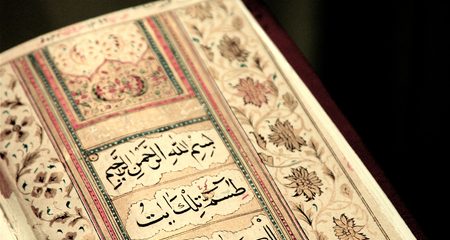 بسم الله الرحمن الرحيم
طسم تلك ايت